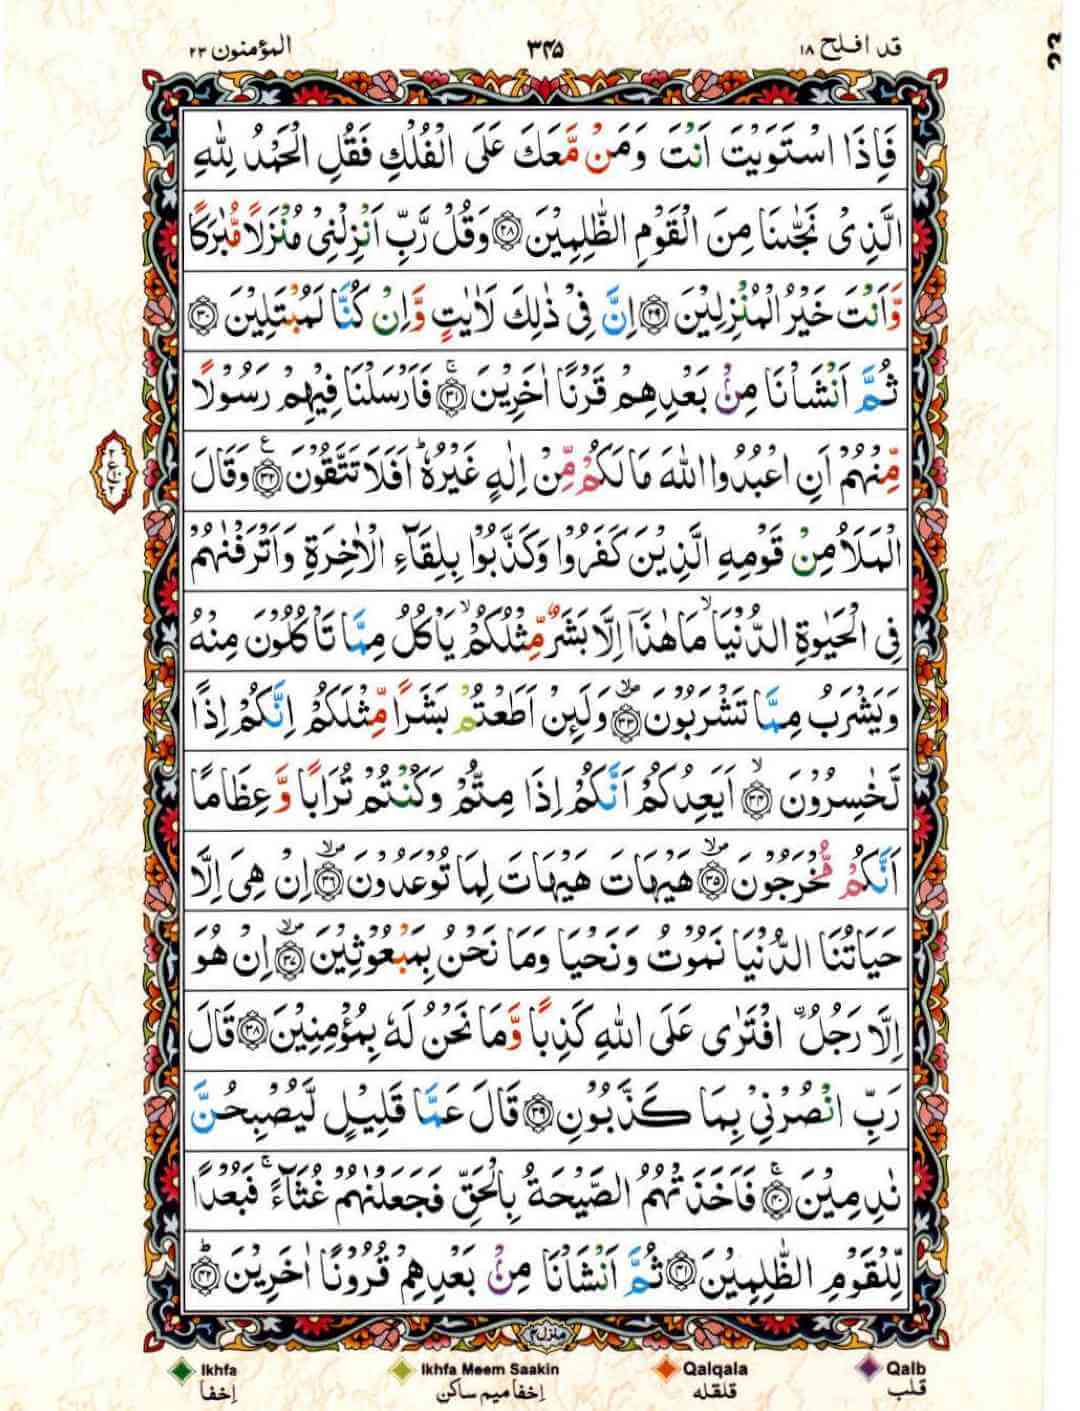 قد افلح ۱۸
۳۴۵
المؤمنون ۲۳
فَاِذَا اسْتَوَيْتَ اَنْتَ وَمَنْ مَّعَكَ عَلَى الْفُلْكِ فَقُلِ الْحَمْدُ لِلّٰهِ
الَّذِىْ نَجّٰىنَا مِنَ الْقَوْمِ الظّٰلِمِيْنَ ﴿۲۸﴾ وَقُلْ رَّبِّ اَنْزِلْنِىْ مُنْزَلًا مُّبٰرَكًا
وَّاَنْتَ خَيْرُ الْمُنْزِلِيْنَ ﴿۲۹﴾ اِنَّ فِىْ ذٰلِكَ لَاٰيٰتٍ وَّاِنْ كُنَّا لَمُبْتَلِيْنَ ﴿۳۰﴾
ثُمَّ اَنْشَاْنَا مِنْۢ بَعْدِهِمْ قَرْنًا اٰخَرِيْنَ ۚ﴿۳۱﴾ فَاَرْسَلْنَا فِيْهِمْ رَسُوْلًا
مِّنْهُمْ اَنِ اعْبُدُوا اللّٰهَ مَا لَكُمْ مِّنْ اِلٰهٍ غَيْرُهٗ ؕ اَفَلَا تَتَّقُوْنَ ﴿۳۲﴾ع وَقَالَ
الْمَلَاُ مِنْ قَوْمِهِ الَّذِيْنَ كَفَرُوْا وَكَذَّبُوْا بِلِقَآءِ الْاٰخِرَةِ وَاَتْرَفْنٰهُمْ
فِى الْحَيٰوةِ الدُّنْيَا ۙ مَا هٰذَاۤ اِلَّا بَشَرٌ مِّثْلُكُمْ ۙ يَاْكُلُ مِمَّا تَاْكُلُوْنَ مِنْهُ
وَيَشْرَبُ مِمَّا تَشْرَبُوْنَ ۙ﴿۳۳﴾ وَلَىِٕنْ اَطَعْتُمْ بَشَرًا مِّثْلَكُمْ اِنَّكُمْ اِذًا
لَّخٰسِرُوْنَ ۙ﴿۳۴﴾ اَيَعِدُكُمْ اَنَّكُمْ اِذَا مِتُّمْ وَكُنْتُمْ تُرَابًا وَّعِظَامًا
اَنَّكُمْ مُّخْرَجُوْنَ ۙ﴿۳۵﴾ هَيْهَاتَ هَيْهَاتَ لِمَا تُوْعَدُوْنَ ۙ﴿۳۶﴾ اِنْ هِىَ اِلَّا
حَيَاتُنَا الدُّنْيَا نَمُوْتُ وَنَحْيَا وَمَا نَحْنُ بِمَبْعُوْثِيْنَ ۙ﴿۳۷﴾ اِنْ هُوَ
اِلَّا رَجُلُ ۨافْتَرٰى عَلَى اللّٰهِ كَذِبًا وَّمَا نَحْنُ لَهٗ بِمُؤْمِنِيْنَ ﴿۳۸﴾ قَالَ
رَبِّ انْصُرْنِىْ بِمَا كَذَّبُوْنِ ﴿۳۹﴾ قَالَ عَمَّا قَلِيْلٍ لَّيُصْبِحُنَّ
نٰدِمِيْنَ ۚ﴿۴۰﴾ فَاَخَذَتْهُمُ الصَّيْحَةُ بِالْحَقِّ فَجَعَلْنٰهُمْ غُثَآءً ۚ فَبُعْدًا
لِّلْقَوْمِ الظّٰلِمِيْنَ ﴿۴۱﴾ ثُمَّ اَنْشَاْنَا مِنْۢ بَعْدِهِمْ قُرُوْنًا اٰخَرِيْنَ ؕ﴿۴۲﴾
منزل ۴
Ikhfa Ikhfa Meem Saakin Qalqala Qalb
إخفا إخفا ميم ساكن قلقله قلب